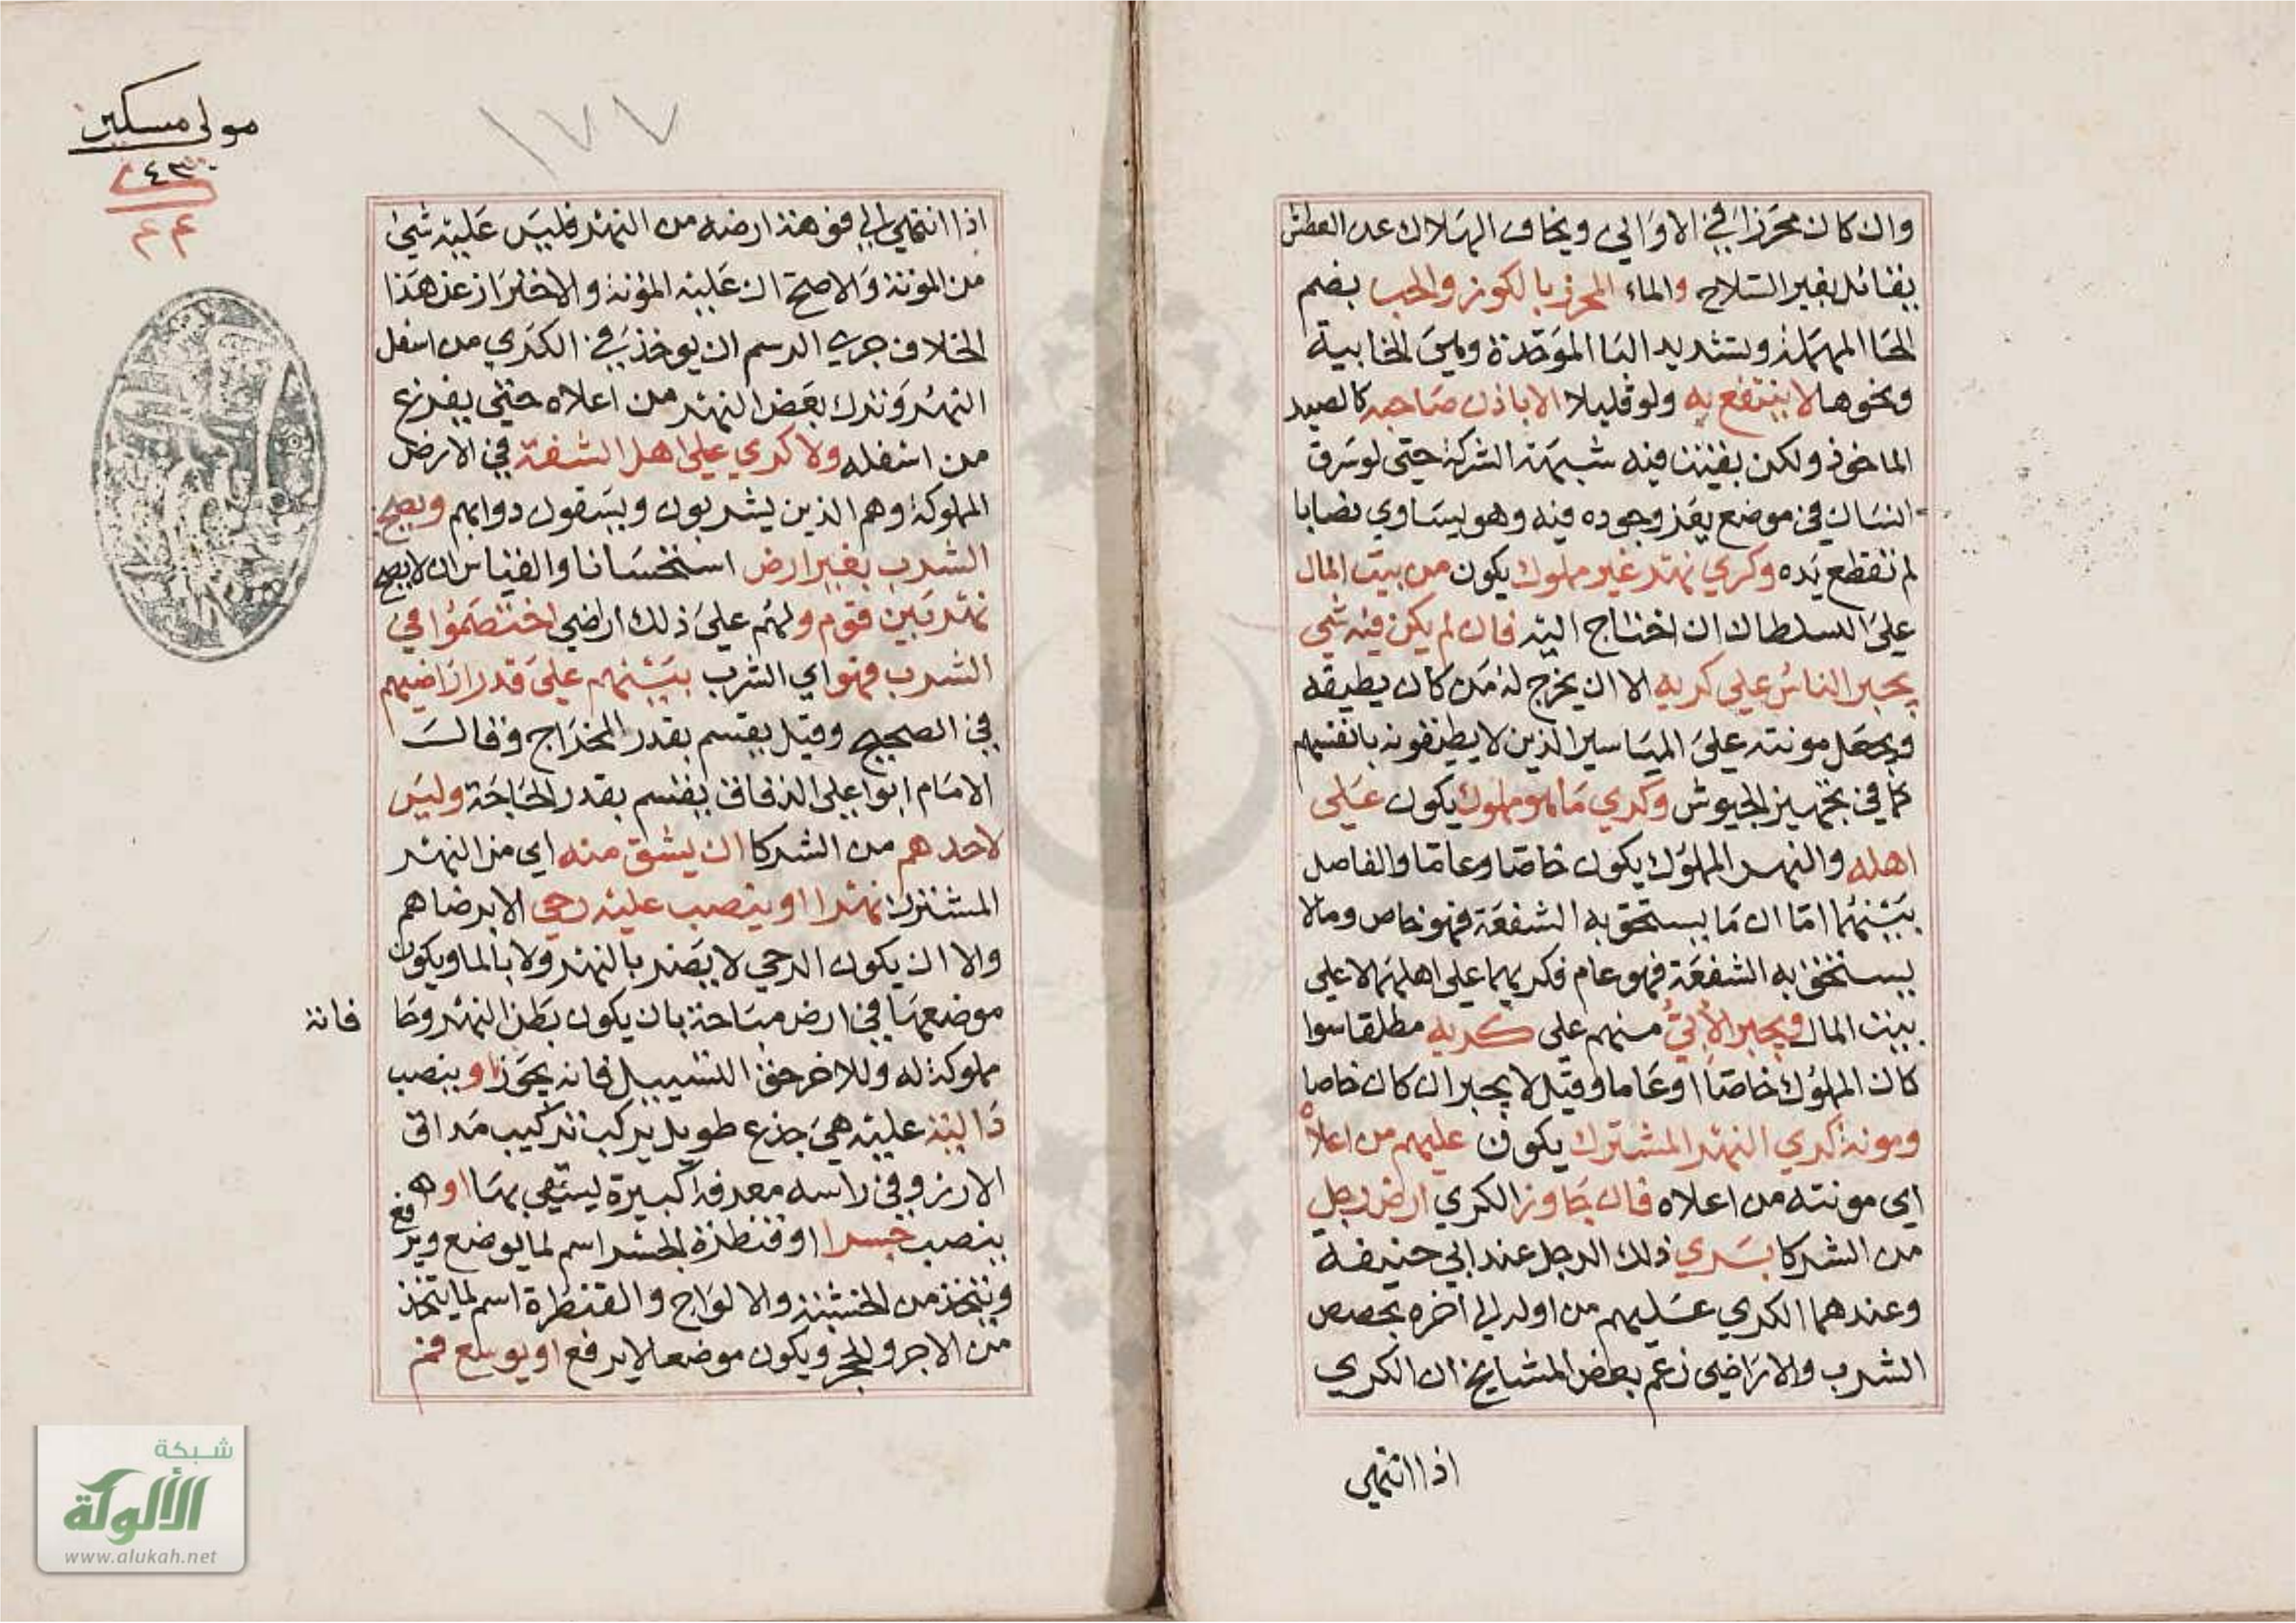 وان كان محرزا في الاواني ويخاف الهلاك عن العطش
يقاتل بغير السلاح والماء المحرز بالكوز والحب بضم
الحا المهملة وتشديد البا الموحدة وهي الخابية
ونحوها لا ينتفع به ولو قليلا الا باذن صاحبه كالصيد
الماخوذ ولكن بقيت فيه شبهة الشركة حتى لو سرق
انسان في موضع يعز وجوده فيه وهو يساوي نصابا
لم تقطع يده وكري نهر غير مملوك يكون من بيت المال
على السلطان ان احتاج اليه فان لم يكن فيه شي
يجبر الناس على كريه الا ان يخرج له من كان يطيقه
ويجعل مونته على المياسير الذين لا يطيقونه بانفسهم
كما في تجهيز الجيوش وكري ما هو مملوك يكون على
اهله والنهر المملوك يكون خاصا وعاما والفاصل
بينهما اما ان ما يستحق به الشفعة فهو خاص وما لا
يستحق به الشفعة فهو عام فكريهما على اهلهما لا على
بيت المال ويجبر الابي منهم على كريه مطلقا سوا
كان المملوك خاصا او عاما وقيل لا يجبر ان كان خاصا
ومونة كري النهر المشترك يكون عليهم من اعلاه
اي مونته من اعلاه فان جاوز الكري ارض رجل
من الشركا بري ذلك الرجل عند ابي حنيفة
وعندهما الكري عليهم من اوله الى آخره بحصص
الشرب والاراضي زعم بعض المشايخ ان الكري
اذا انتهى
١٧٧
مولى مسكين
٤٣٠
٤٤
اذا انتهى الى فوهة ارضه من النهر فليس عليه شي
من المونة والاصح ان عليه المؤنة والاحتراز عن هذا
الخلاف جري الرسم ان يوخذ في الكري من اسفل
النهر وترك بعض النهر من اعلاه حتى يفرغ
من اسفله ولا كري على اهل الشفة في الارض
المملوكة وهم الذين يشربون ويسقون دوابهم ويصح
الشرب بغير ارض استحسانا والقياس ان لا يصح
نهر بين قوم ولهم على ذلك اراضي اختصموا في
الشرب فهو اي الشرب بينهم على قدر اراضيهم
في الصحيح وقيل يقسم بقدر الخراج وقالت
الامام ابوا علي الدقاق يقسم بقدر الحاجة وليس
لاحدهم من الشركا ان يشق منه اي من النهر
المشترك نهرا او ينصب عليه رحي الا برضاهم
والا ان يكون الرحي لا يضر بالنهر ولا بالما ويكون
موضعها في ارض مباحة بان يكون بطن النهر وحا
فانة
مملوكة له وللاخر حق التسييل فانه يجوز او ينصب
دالية عليه هي جذع طويل يركب تركيب مداق
الارز وفي راسه مغرفة كبيرة يستقي بها او
ينصب جسرا او قنطرة الجسر اسم لما يوضع ويرفع
ويتخذ من الخشبة والالواح والقنطرة اسم لما يتخذ
من الاجر والحجر ويكون موضعا لا يرفع او يوسع فم
شبكة
الألوكة
www.alukah.net